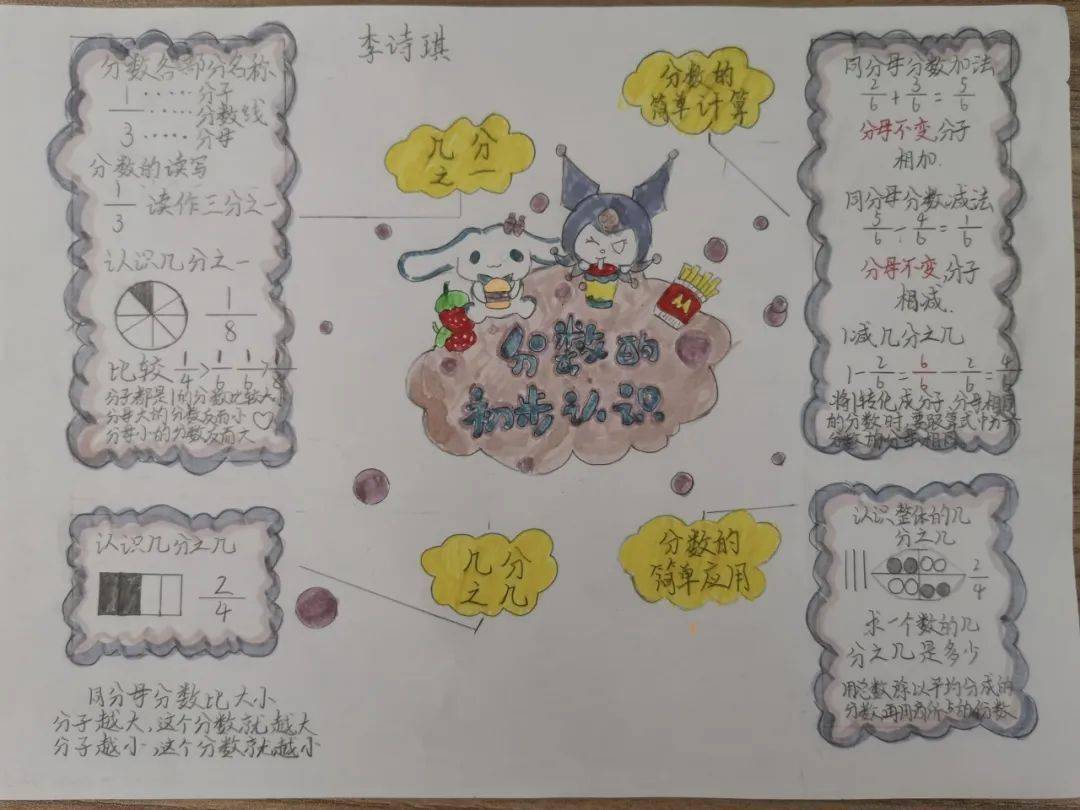 李诗琪
分数的
初步认识
几分
之一
分数的
简单计算
几分
之几
分数的
简单应用
分数各部分名称
1 ····· 分子
····· 分数线
3 ····· 分母
分数的读写
1/3 读作三分之一
认识几分之一
1/8
比较 1/4 > 1/6 1/6 > 1/8
分子都是1的分数比较大小
分母大的分数反而小
分母小的分数反而大
认识几分之几
2/4
同分母分数比大小
分子越大,这个分数就越大
分子越小,这个分数就越小
同分母分数加法
2/6 + 3/6 = 5/6
分母不变,分子
相加.
同分母分数减法
5/6 - 4/6 = 1/6
分母不变,分子
相减.
1减几分之几
1 - 2/6 = 6/6 - 2/6 = 4/6
将1转化成分子,分母相同
的分数时,要跟算式中
分数的分母相同
认识整体的几
分之几
2/4
求一个数的几
分之几是多少
用总数除以平均分成的
分数,再用